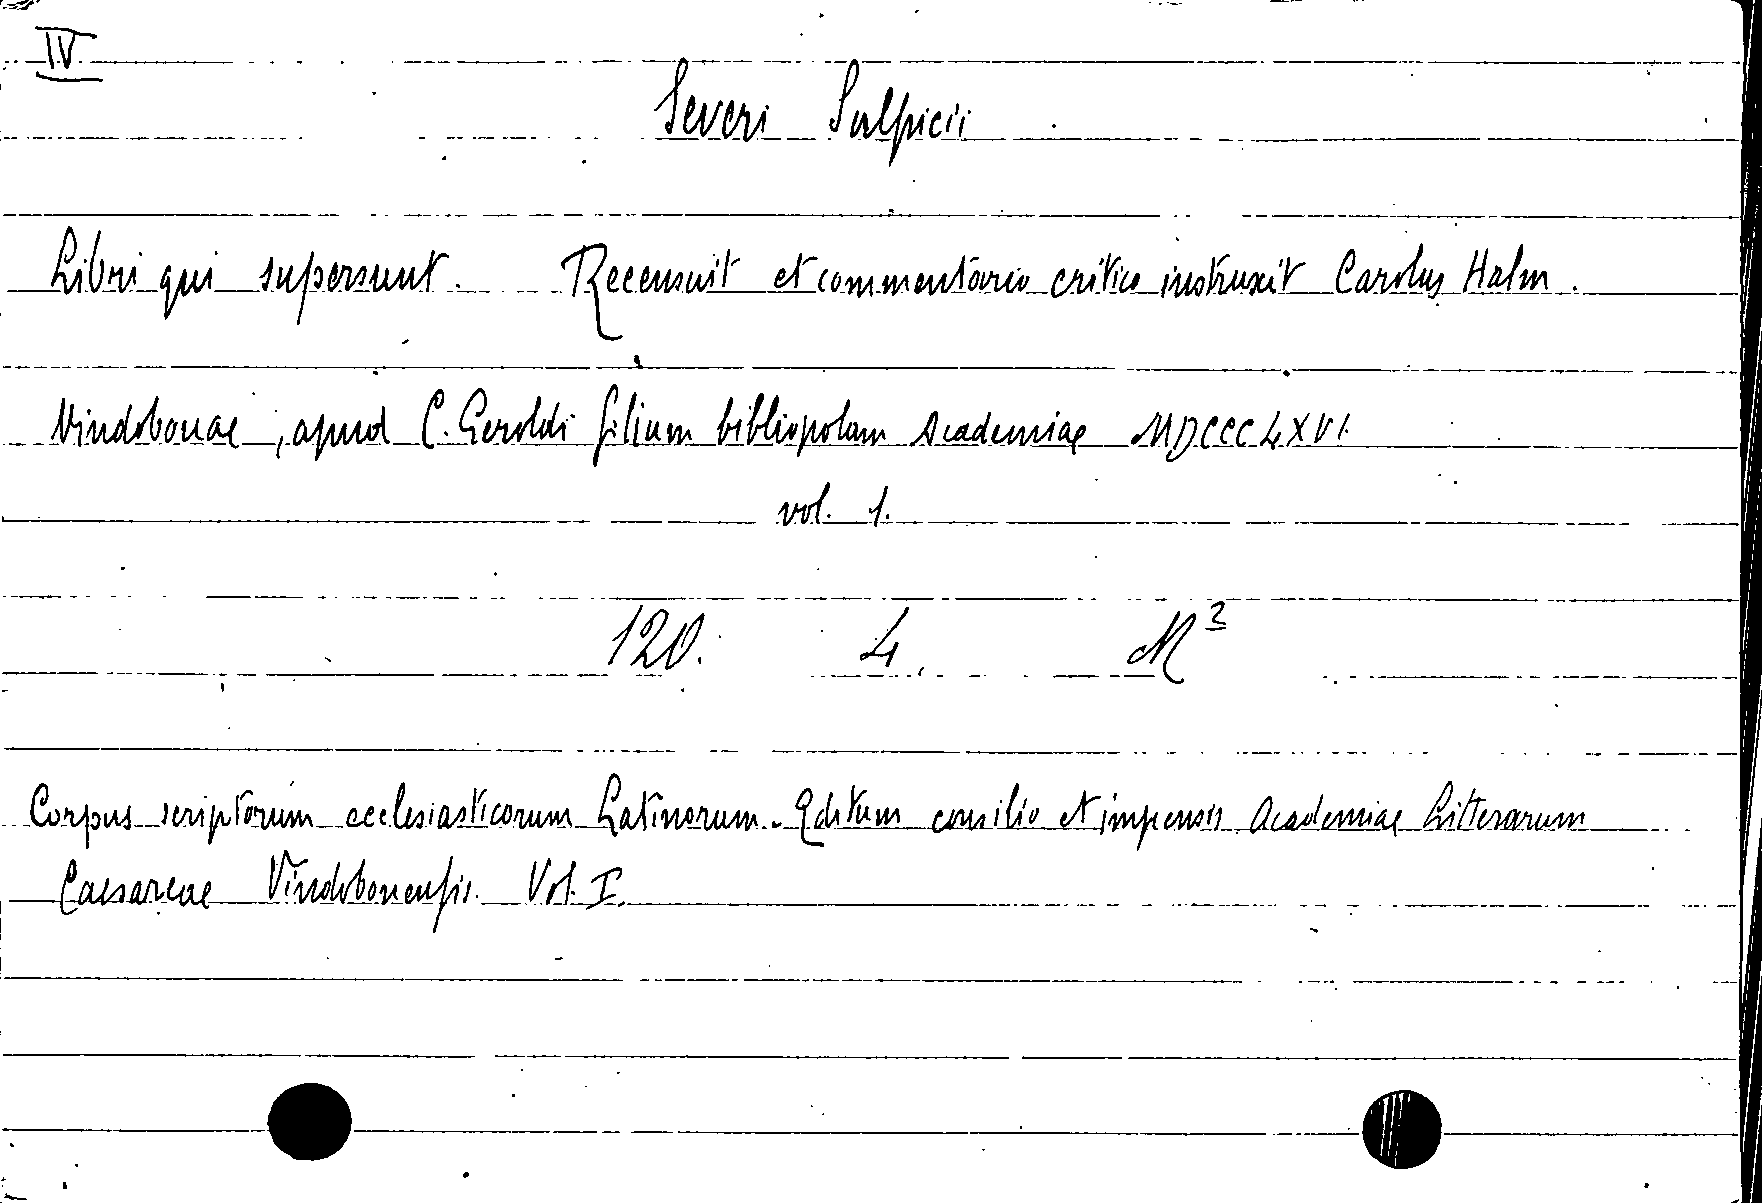 IV
Severi Sulpicii
Libri qui supersunt. Recensuit et commentario critico instruxit Carolus Halm.
Vindobonae, apud C. Geroldi filium bibliopolam Academiae MDCCCLXVI.
vol. 1.
120. 4. M²
Corpus scriptorum ecclesiasticorum Latinorum. Editum consilio et impensis Academiae Litterarum
Caesareae Vindobonensis. Vol. I.